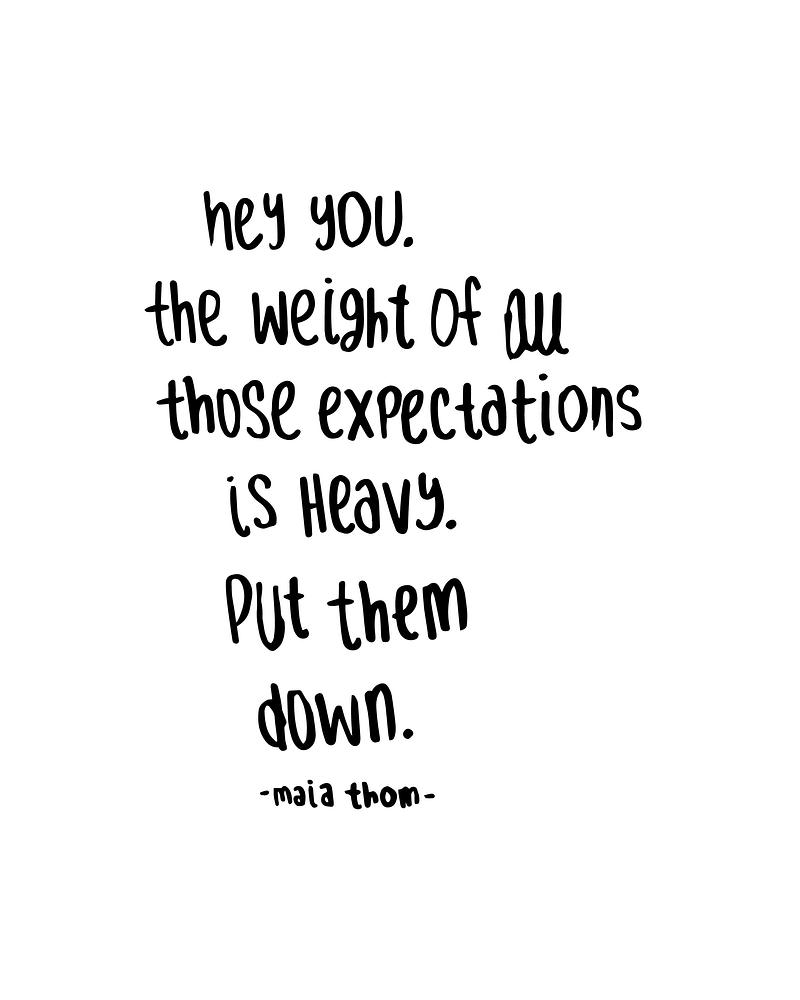 hey you.
the weight of all
those expectations
is Heavy.
Put them
down.
-maia thom-